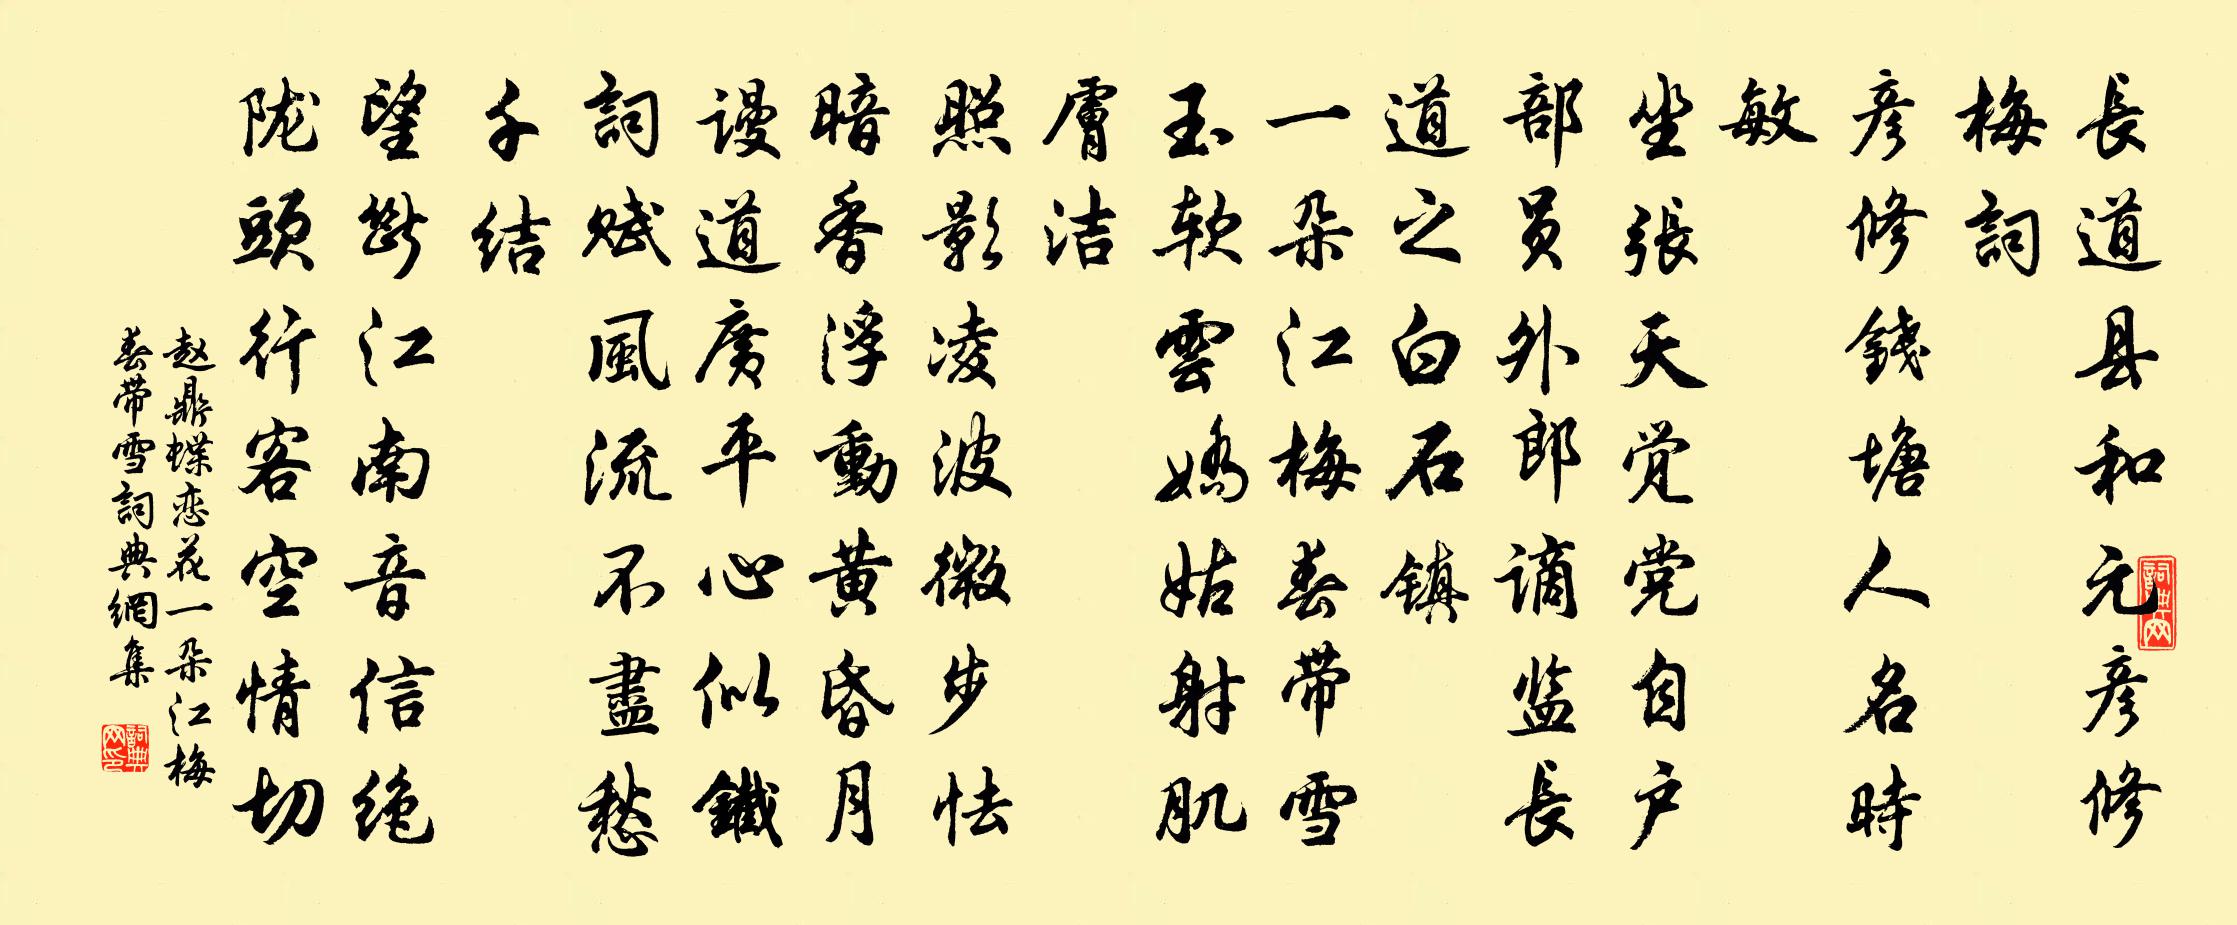 長道县和元彦修
梅詞
彦修錢塘人名時
敏
坐張天觉党自户
部員外郎谪监長
道之白石镇
一朵江梅春带雪
玉软雲嬌姑射肌
膚洁
照影凌波微步怯
暗香浮動黄昏月
谩道广平心似鐵
詞赋風流不盡愁
千结
望斷江南音信绝
陇頭行客空情切
赵鼎蝶恋花一朵江梅
春带雪詞典網集
詞典网
詞典网印